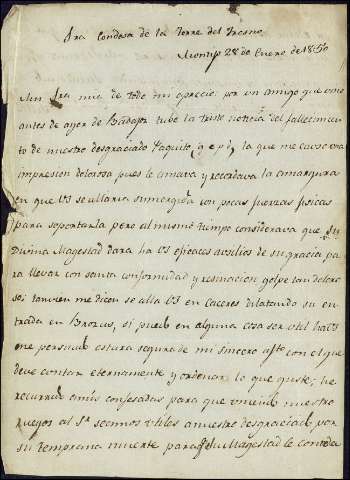 Sra Condesa de la Torre del Fresno
28 de Enero de 1850
Sra mia de todo mi aprecio: por un amigo que vino
antes de ayer de Badajoz tube la triste noticia del fallecimien
to de nuestro desgraciado Paquito (q e p d) la que me causo una
impresion dolorosa pues le amava y recordava la amargura
en que VS se allaria sumergida con pocas fuerzas fisicas
para soportarla pero al mismo tiempo considerava que su
Divina Magestad dara ha VS eficaces ausilios de su gracia pa
ra llevar con santa conformidad y resinacion golpe tan doloro
so: tanvien me dicen se alla VS en Caceres dilatando su en
trada en Brozas, si puedo en alguna cosa ser util ha VS
me persuado estara segura de mi sincero afto con el que
deve contar eternamente y ordenar lo que guste; he
a mis confesadas para que uniendo nuestro
ruegos al Sr seamos utiles a nuestro desgraciado por
su temprana muerte para que su Magestad le conceda